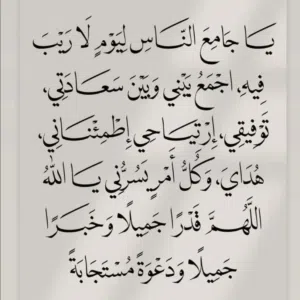 يَا جَامِعَ النَّاسِ لِيَوْمٍ لَا رَيْبَ
فِيهِ، اجْمَعْ بَيْنِي وَبَيْنَ سَعَادَتِي،
تَوْفِيقِي، إِرْتِيَاحِي إِطْمِئْنَانِي،
هُدَايَ، وَكُلُّ أَمْرٍ يَسُرُّنِي يَا اللهُ
اللَّهُمَّ قَدَرًا جَمِيلًا وَخَبَرًا
جَمِيلًا وَدَعْوَةً مُسْتَجَابَةً